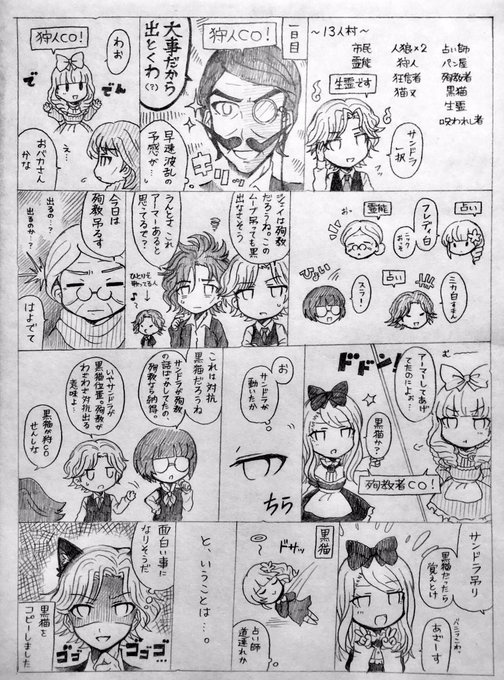 ～13人村～
市民　人狼×2　占い師
霊能　狩人　パン屋
狂信者　殉教者
猫又　黒猫
生霊
呪われし者
生霊です
サンドラ
一択
一日目
狩人CO!
大事だから
出とくわ(?)
早速波乱の
予感が…
狩人CO!
わお
でん
で
え…
おバカさん
かな
占い
フレディ白
霊能
おー
ニック
おっそ
占い
ミカ白すまん
スラー!
ジェイは殉教
だろうね。この
ムーブ吊っても黒
出なさそう
うんとさこれ
アーマーあると
思ってるで?
ひとりを
狩ってる人
♪
↓
今日は
殉教吊るす
出るの…?
出るのか…?
はよでて
む
アーマーしてあげ
てたのによぉ…
ドドン!
黒猫か?
殉教者CO!
お
サンドラが
動いたか
ちら
これは対抗
黒猫だろうね
サンドラが殉教
の話ばっかしてたの
殉教なら納得。
いやサンドラが
黒猫位置。殉教が
わざわざ対抗出る
意味よ
黒猫が狩CO
せんしな
サンドラ吊り
黒猫だったら
覚えとけ
パニッったわ。
あざーす
黒猫
ドサッ
占い師
道連れか
と、いうことは…。
面白い事に
なりそうだ
ゴゴ
ゴゴゴ…
黒猫を
コピーしました